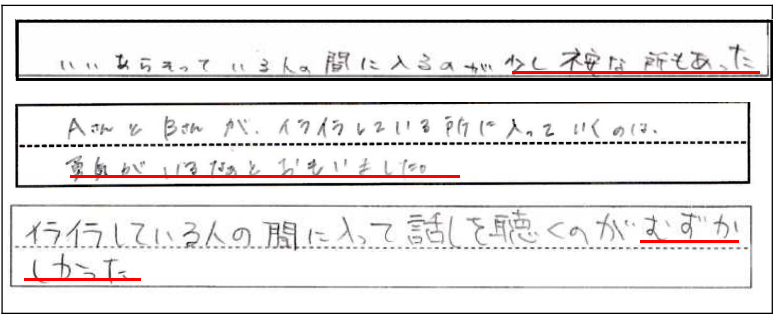 いいあらそっている人の間に入るのが少し不安な所もあった
AさんとBさんが、イライラしている所に入っていくのは、
勇気がいるなぁとおもいました。
イライラしている人の間に入って話しを聴くのがむずか
しかった